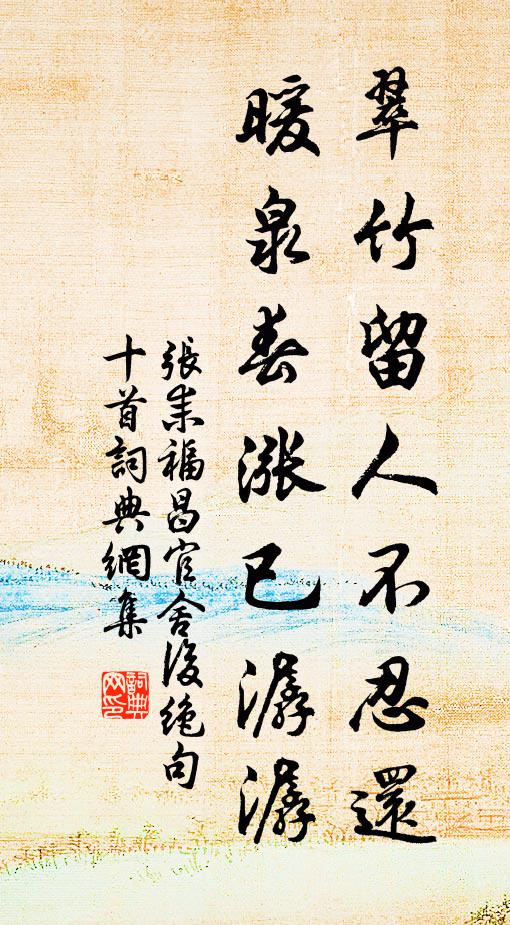 翠竹留人不忍還
暖泉春漲已潺潺
張耒福昌官舍後絕句
十首詞典網集
詞典网印